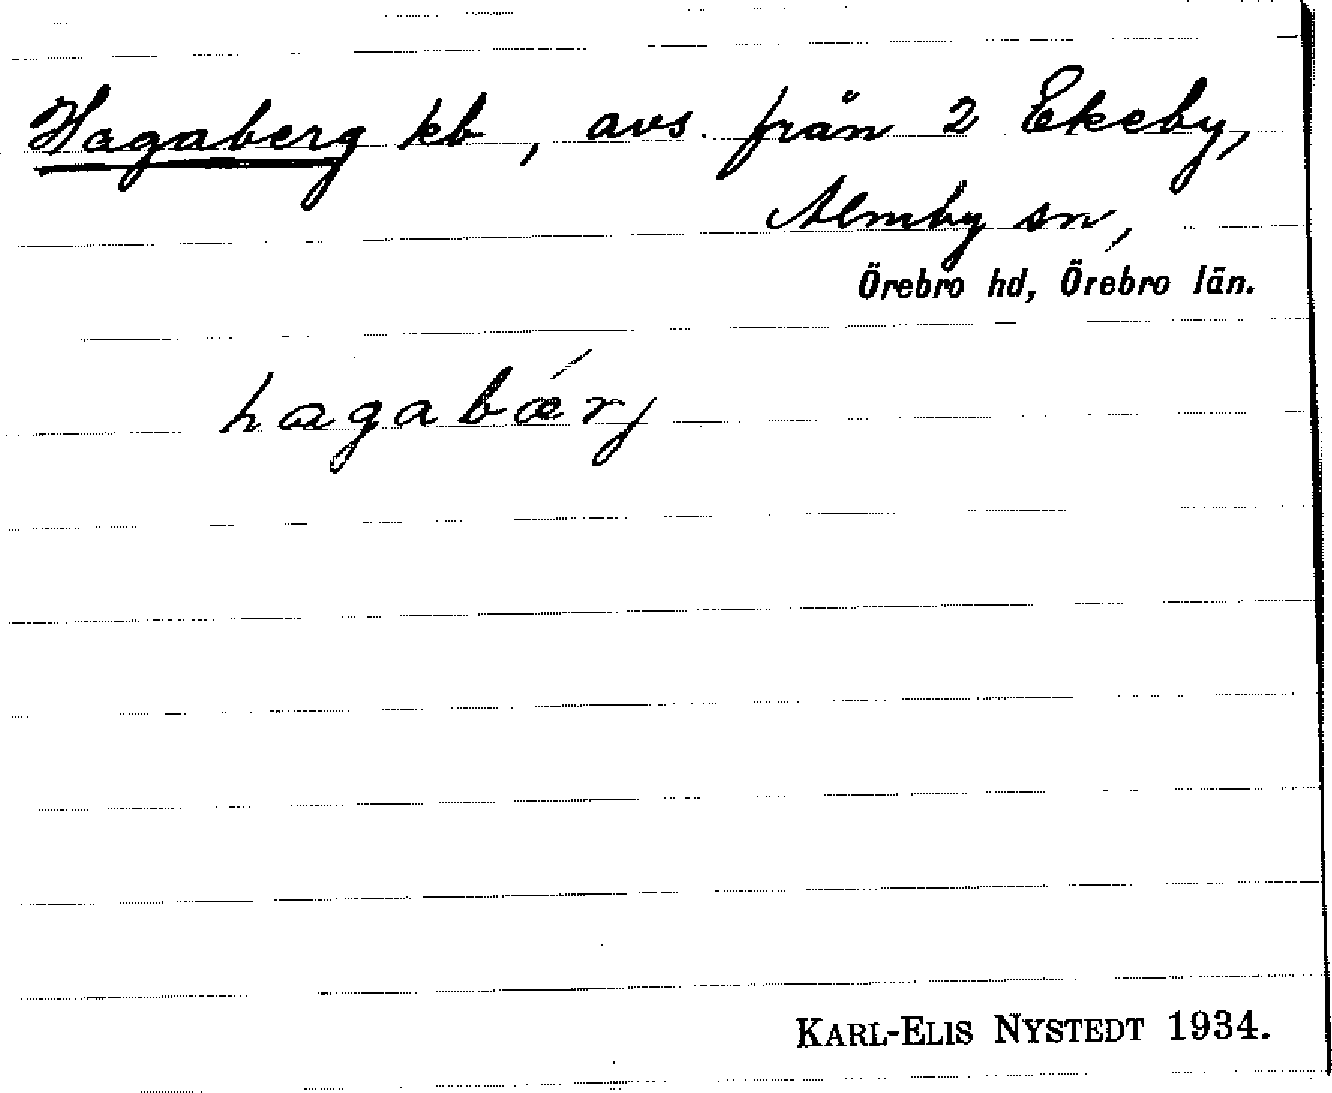 Hagaberg kb, avs. från 2 Ekeby,
Almby sn,
Örebro hd, Örebro län.
hagabǽrj
KARL-ELIS NYSTEDT 1934.